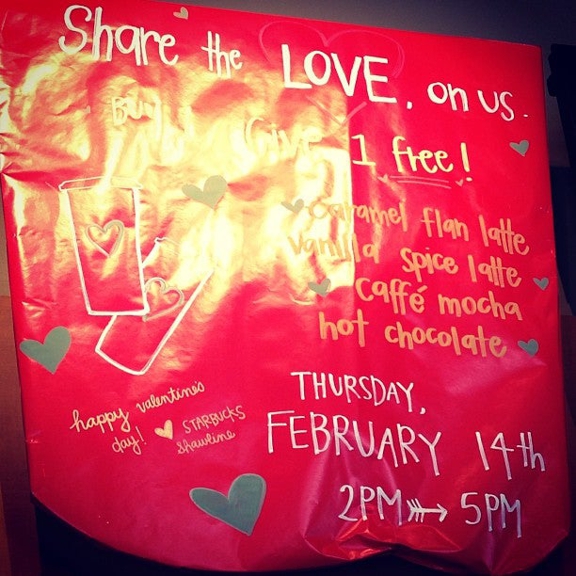 Share the LOVE, on us.
Buy 1 Give 1 free!
caramel flan latte
vanilla spice latte
caffé mocha
hot chocolate
THURSDAY,
FEBRUARY 14th
2PM → 5PM
happy valentines
day! STARBUCKS
Shawline